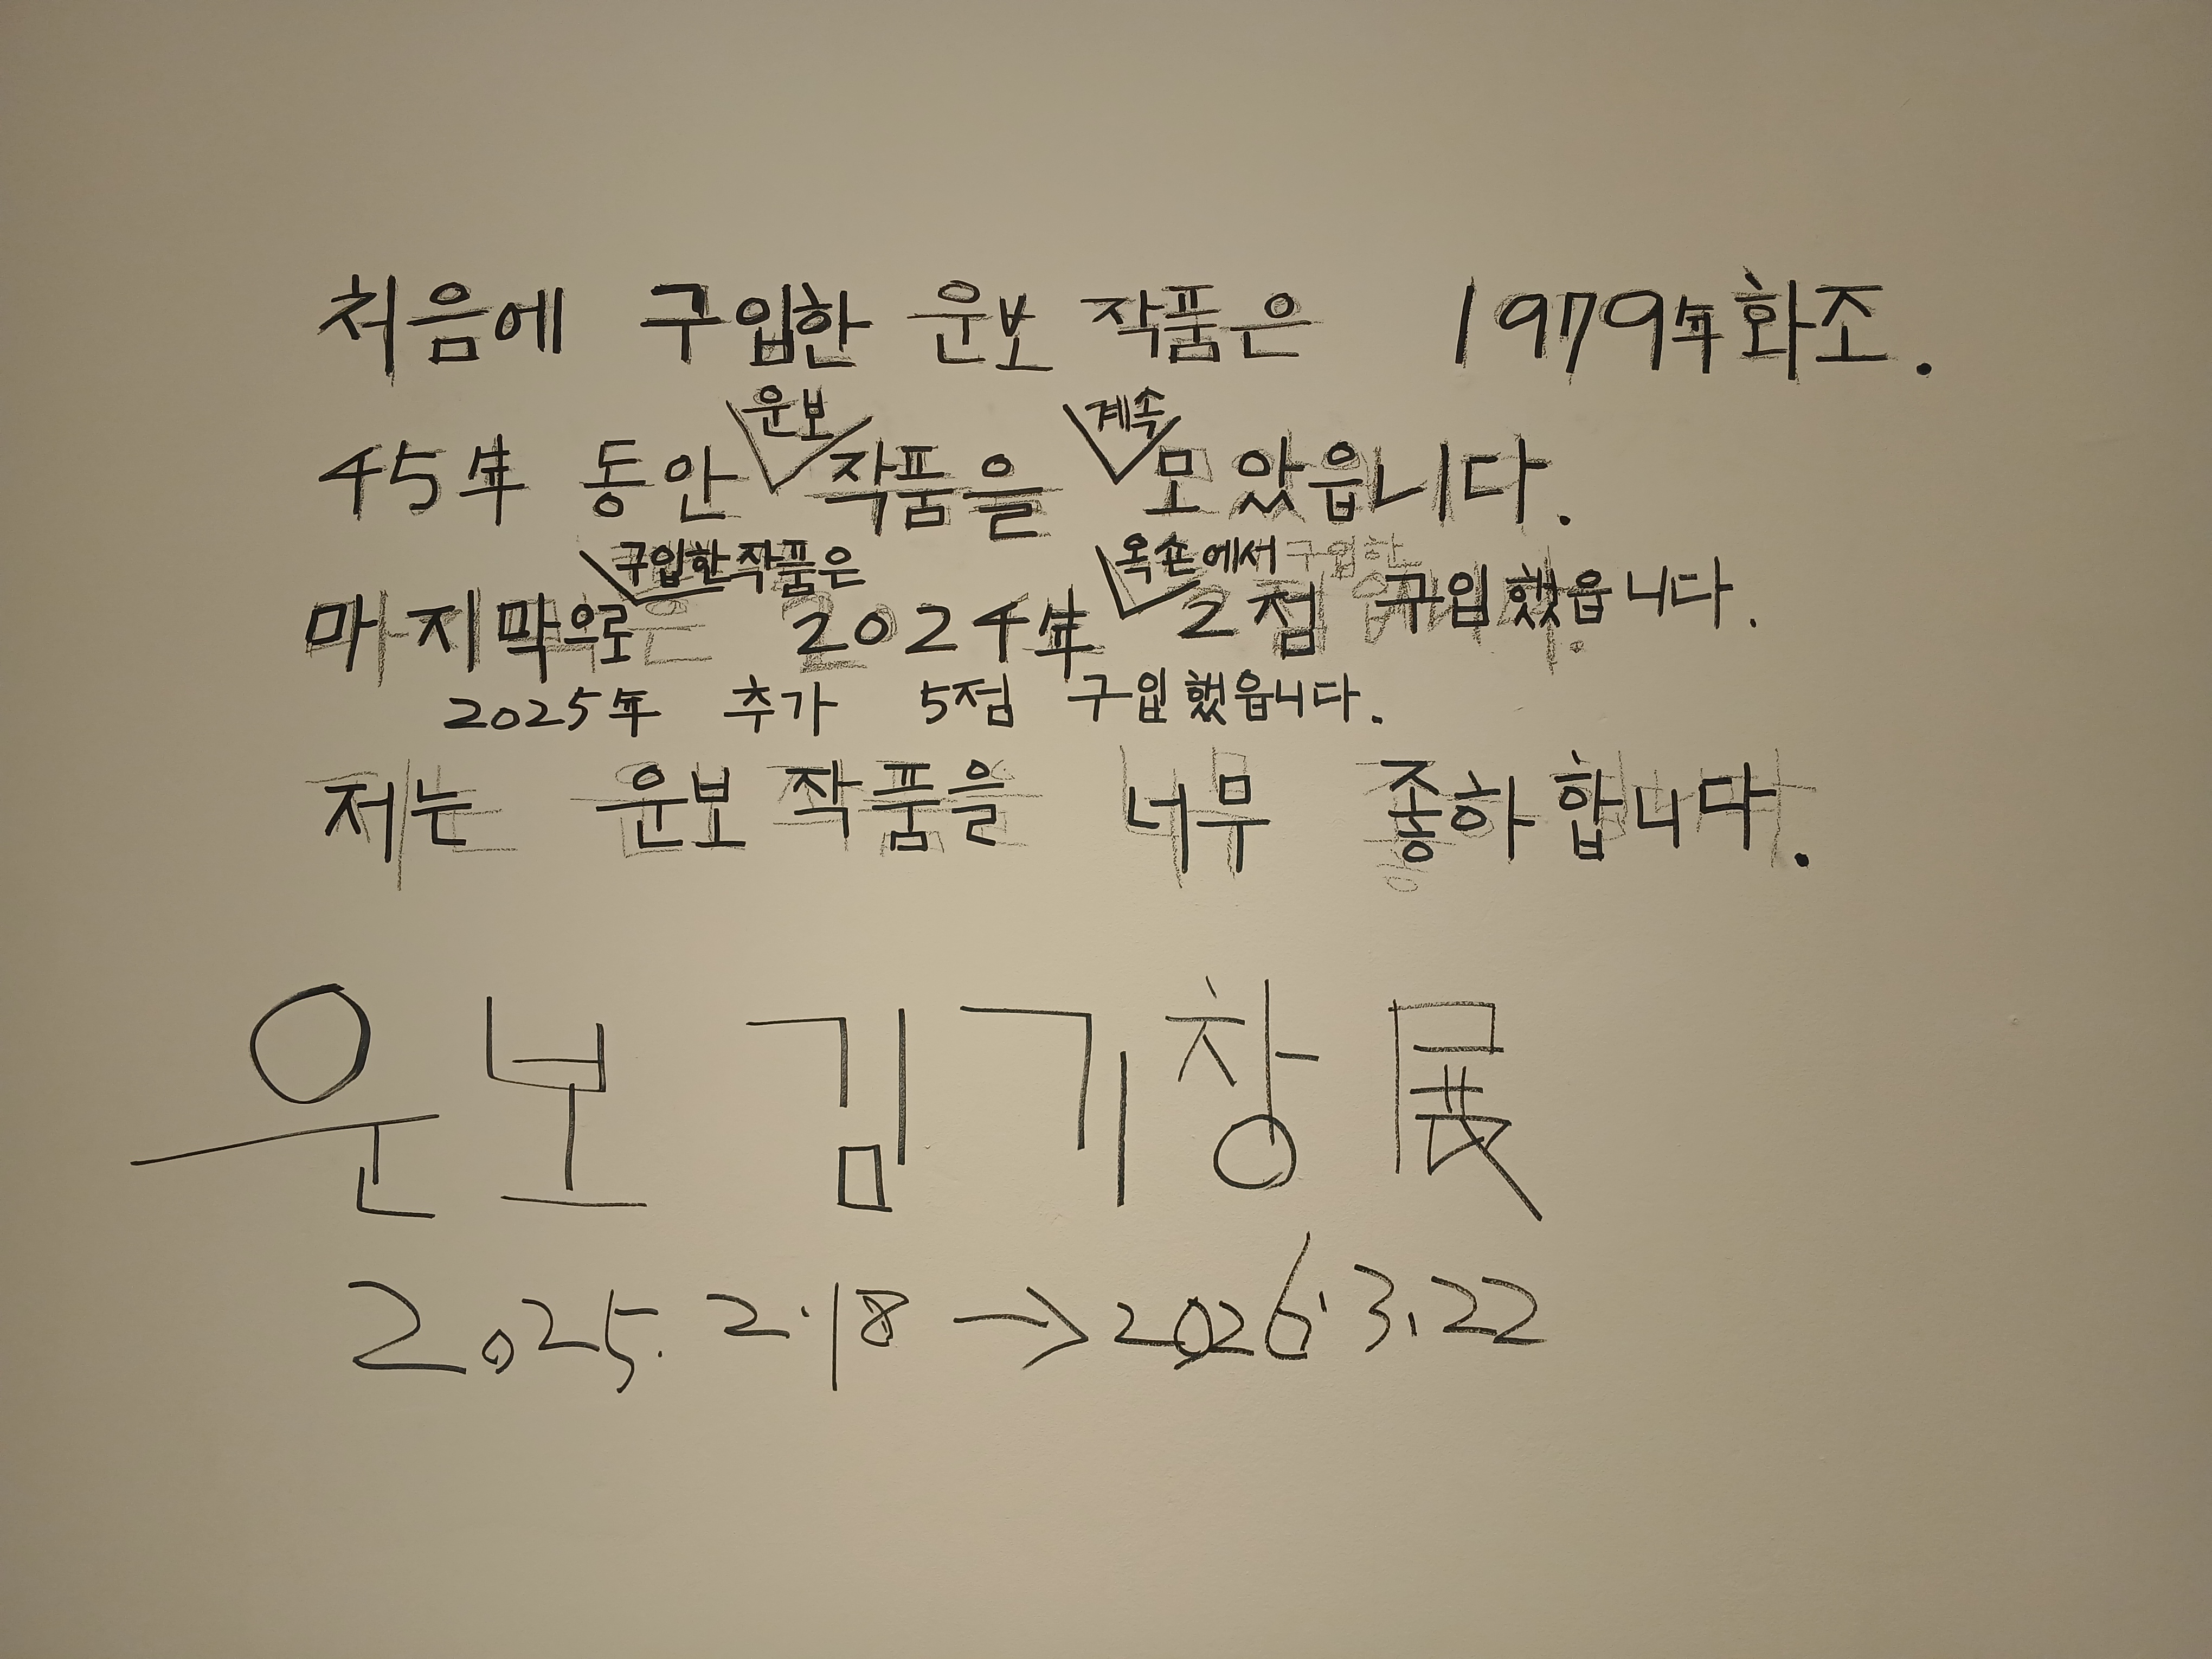 처음에 구입한 운보 작품은 1979年 화조.
45年 동안 운보 작품을 계속 모았읍니다.
마지막으로 구입한 작품은 2024年 옥숀에서 2점 구입했읍니다.
2025年 추가 5점 구입했읍니다.
저는 운보 작품을 너무 좋하합니다.
운보 김기창 展
2025.2.18 → 2026.3.22